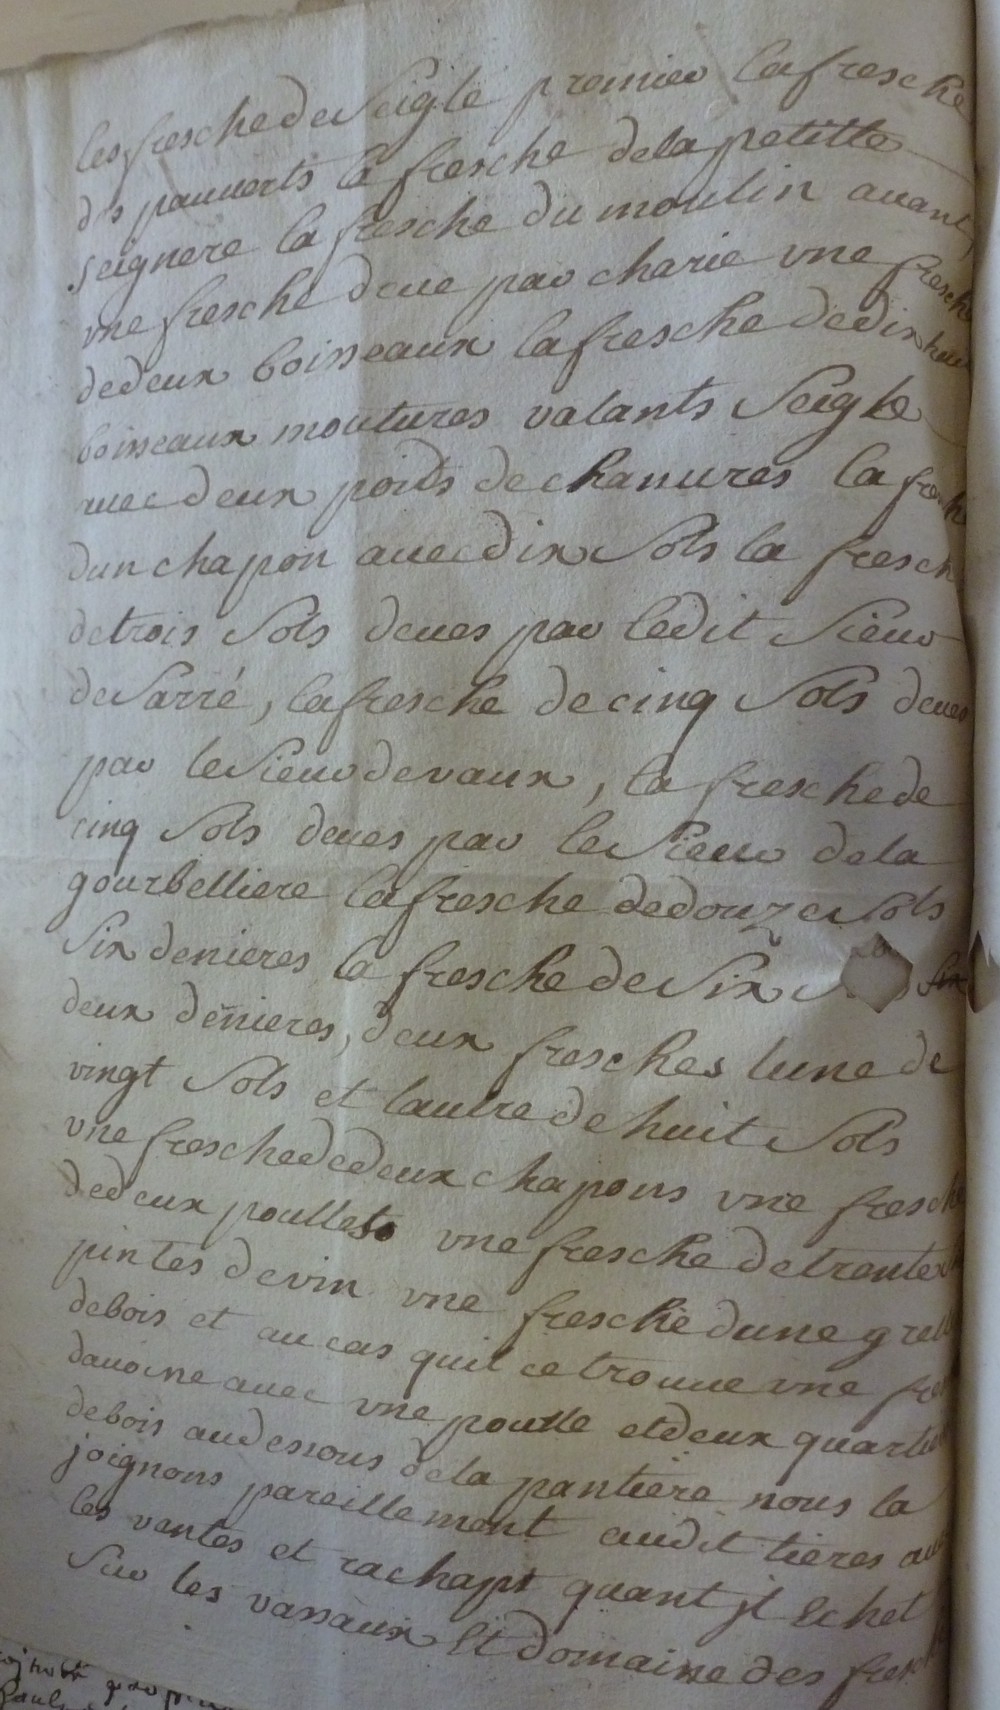 les fresche de Seigle premier la fresche
des pauverts la fresche de la petitte
seignere la fresche du moulin avant,
vne fresche deue par charie vne fresche
de deux boisseaux la fresche de dix huit
boisseaux moutures valants Seigle
avec deux poids de chanures la fresche
dun chapon avec dix Sols la fresch
de trois Sols deues par ledit Sieur
de Sarré, la fresche de cinq Sols deues
par le Sieur de vaux, la fresche de
cinq Sols deues par le Sieur de la
gourbelliere la fresche de douze Sols
Six denieres la fresche de Six
deux denieres, deux fresches lune de
vingt Sols et lautre de huit Sols
vne fresche de deux chapons vne fresche
de deux poullets vne fresche de trente
pintes de vin vne fresche dune
de bois et au cas quil ce trouve vne
davoine avec vne poulle et deux quartie
de bois au dessous de la pantiere nous la
joignons pareillement audit tieres
les ventes et rachapt quant jl Echet
Sur les vassaux Et domaine des fresch